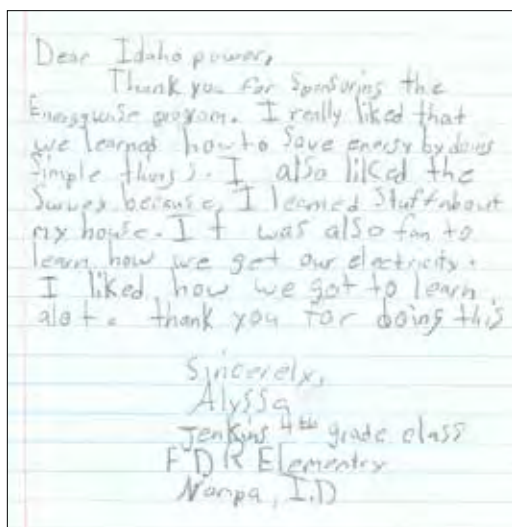 Dear Idaho power,
Thank you for Sponsoring the
Energywise program. I really liked that
we learned how to Save energy by doing
Simple things. I also liked the
Survey because, I learned Stuff about
my house. It was also fun to
learn how we get our electricity.
I liked how we got to learn
alot. thank you for doing this
Sincerely,
Alyssa
Jenkins 4th grade class
FDR Elementry
Nampa, I.D